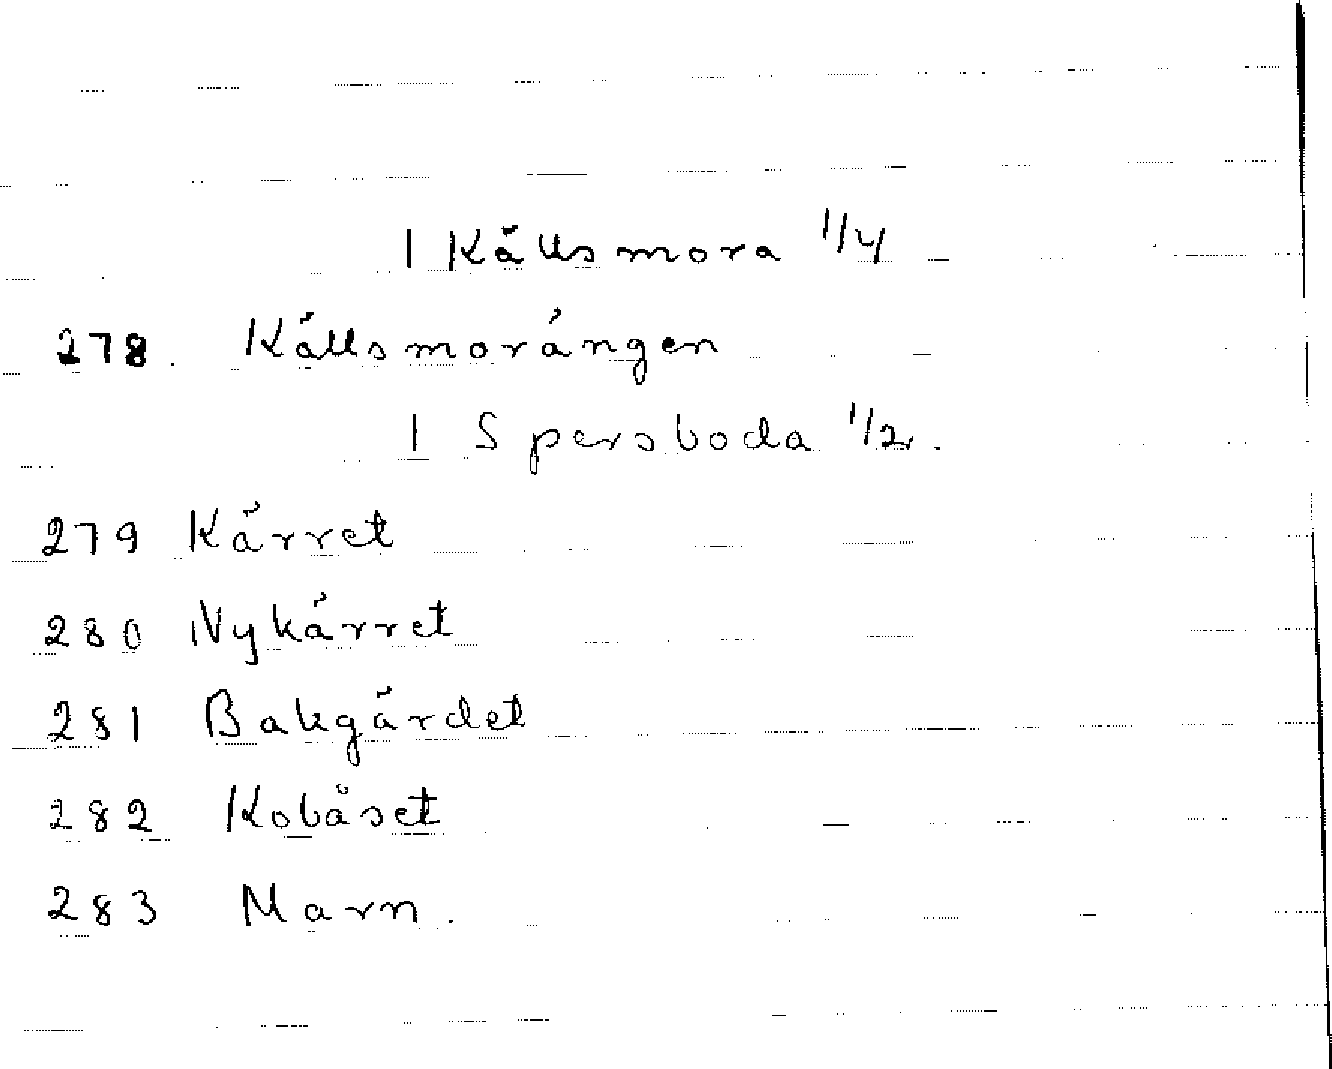 I Källsmora 1/4
278. Källsmorängen
I Spersboda 1/2.
279 Kärret
280 Nykärret
281 Bakgärdet
282 Kobåset
283 Marn.